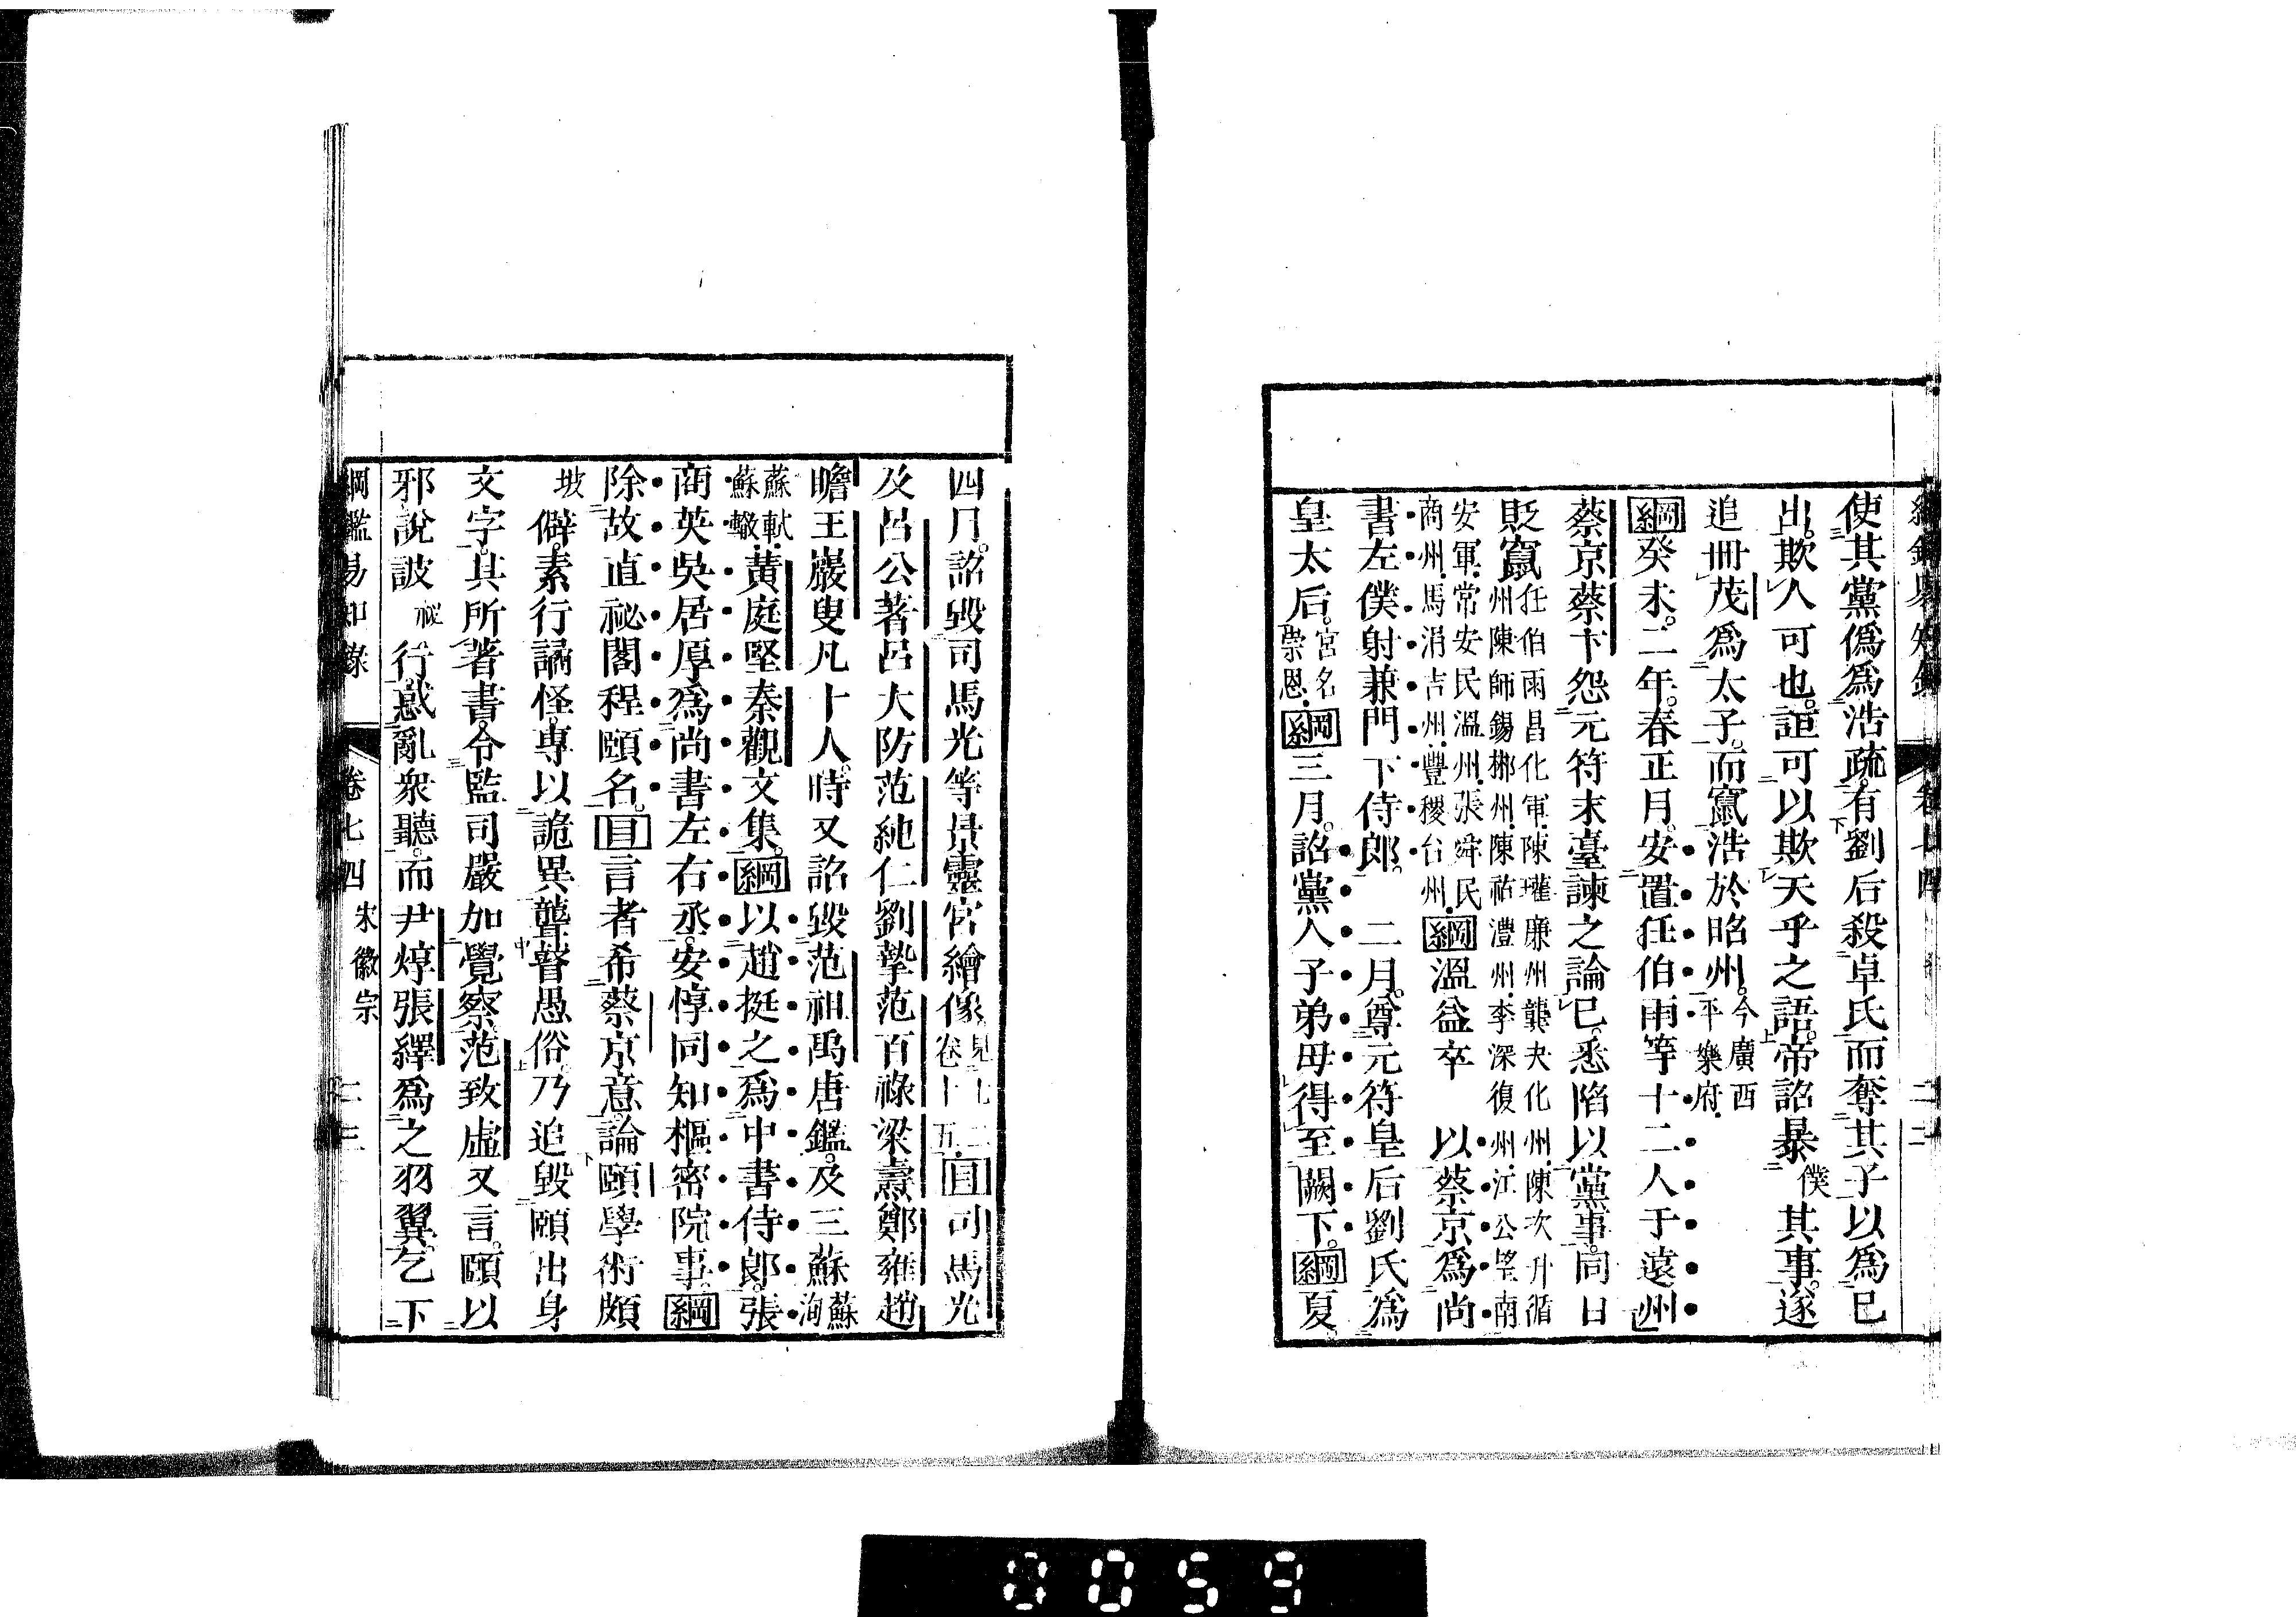 使其黨僞爲浩疏。有劉后殺卓氏而奪其子以爲已
出。欺人可也。詎可以欺天乎之語。帝詔暴僕其事。遂
追冊茂爲太子。而竄浩於昭州。今廣西平樂府.
綱癸未。二年。春正月。安置任伯雨等十二人于遠州
蔡京蔡卞怨元符末臺諫之論已。悉陷以黨事。同日
貶竄任伯雨昌化軍.陳瓘廉州龔夬化州.陳次升循州陳師錫郴州.陳祐澧州.李深復州.江公望南
安軍.常安民溫州.張舜民商州.馮涓吉州.豐稷台州.綱溫益卒 以蔡京爲尚
書左僕射兼門下侍郎。 二月。尊元符皇后劉氏爲
皇太后。宮名崇恩.綱三月。詔黨人子弟毋得至闕下。綱夏。
綱鑑易知錄 卷七四 二二
四月。詔毀司馬光等景靈宮繪像。見七二卷十五目司馬光
及呂公著呂大防范純仁劉摯范百祿梁燾鄭雍趙
瞻王巖叟凡十人。時又詔毀范祖禹唐鑑。及三蘇蘇洵
蘇軾.蘇轍.黃庭堅秦觀文集。綱以趙挺之爲中書侍郎。張
商英吳居厚爲尚書左右丞。安惇同知樞密院事。綱
除故直祕閣程頤名。目言者希蔡京意。論頤學術頗
坡僻。素行譎怪。專以詭異聾瞽愚俗。乃追毀頤出身
文字。其所著書。令監司嚴加覺察。范致虛又言。頤以
邪說詖祕行惑亂衆聽。而尹焞張繹爲之羽翼。乞下
綱鑑易知錄 卷七四 宋徽宗 二三
0059